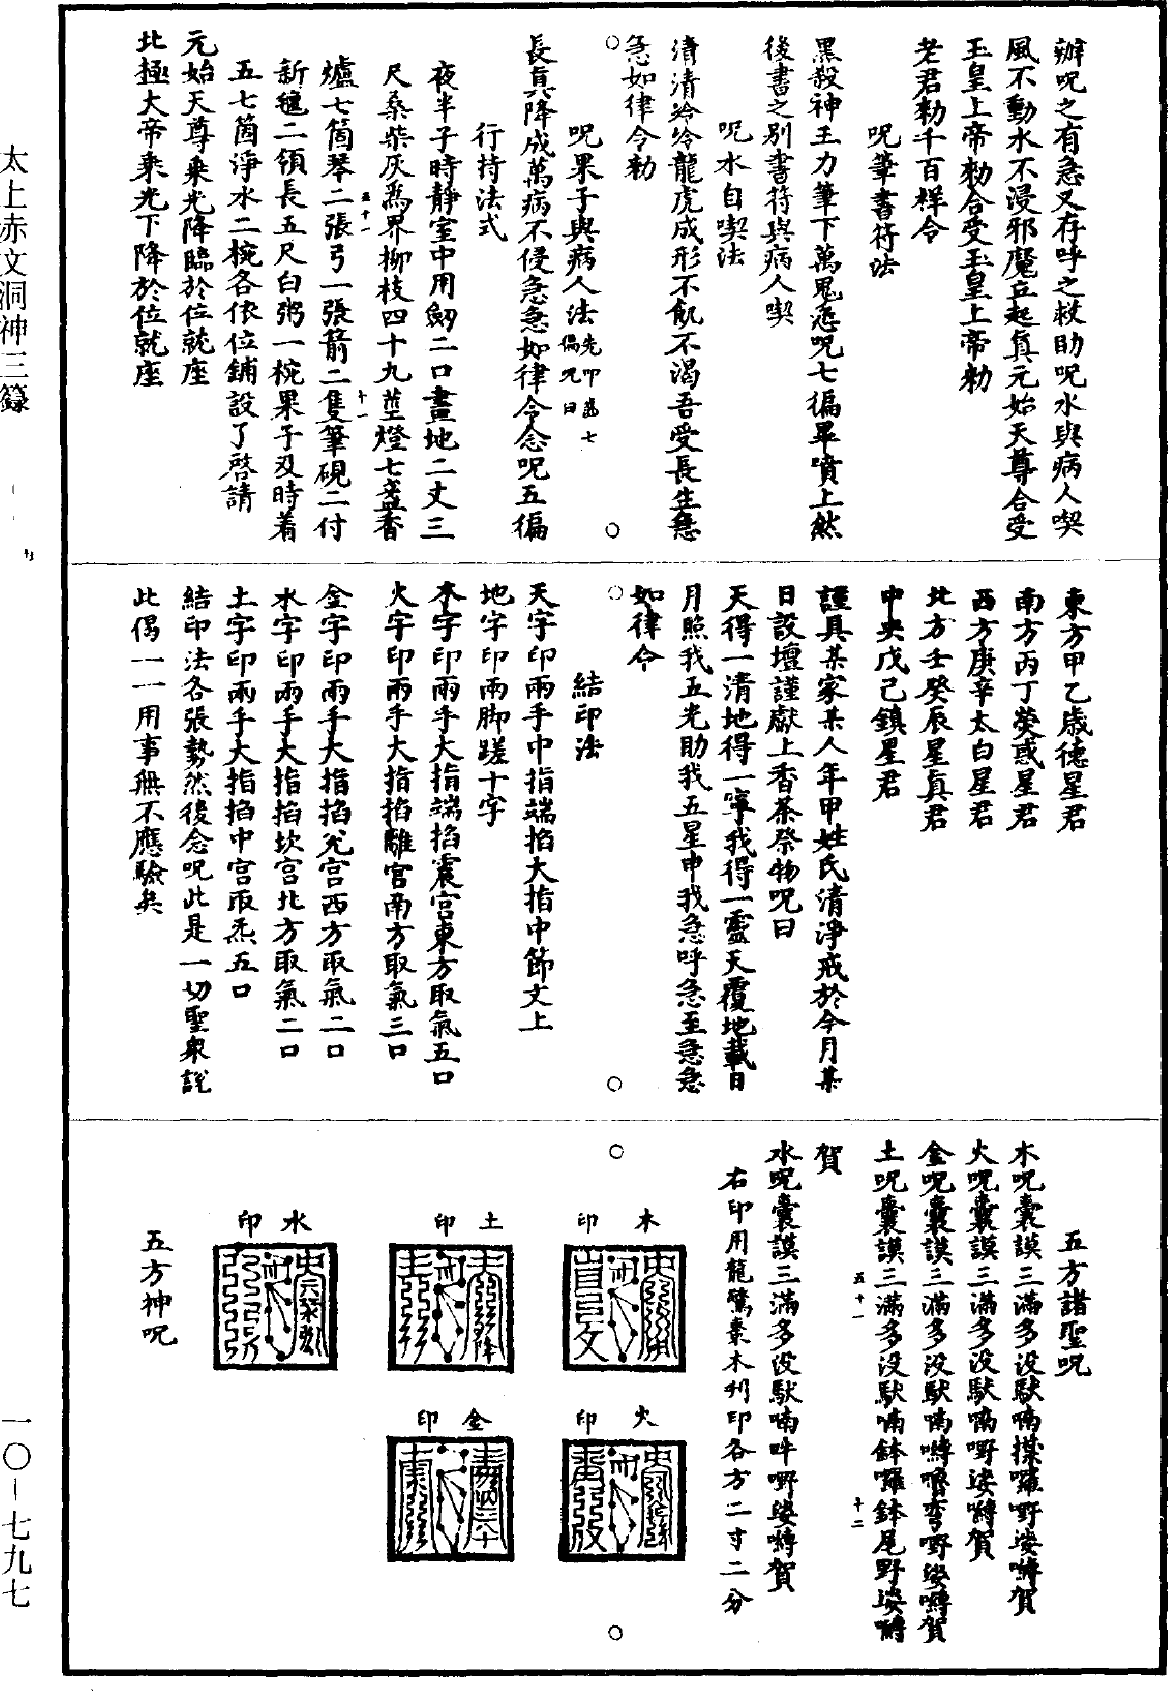 辦呪之有急又存呼之救助呪水與病人喫
風不動水不浸邪魔立起真元始天尊合受
玉皇上帝勑合受玉皇上帝勑
老君勑千百樣令
呪筆書符法
黑殺神王力筆下萬鬼愁呪七徧畢噴上然
後書之别書符與病人喫
呪水自喫法
清清泠泠龍虎成形不飢不渴吾受長生急
急如律令勑
呪果子與病人法先叩齒七徧咒曰
長真降成萬病不侵急急如律令念呪五徧
行持法式
夜半子時靜室中用劒二口畫地二丈三
尺桑柴灰爲界柳枝四十九莖燈七盞香
爐七箇琴二張弓一張箭二隻筆硯二付
五十一
十一
新氊二領長五尺白粥一椀果子及時着
五七箇淨水二椀各依位鋪設了啓請
元始天尊乘光降臨於位就座
北極大帝乘光下降於位就座
東方甲乙歲德星君
南方丙丁熒惑星君
西方庚辛太白星君
北方壬癸辰星真君
中央戊己鎮星君
謹具某家某人年甲姓氏清淨戒於今月某
日設壇謹獻上香茶祭物呪曰
天得一清地得一寧我得一靈天覆地載日
月照我五光助我五星申我急呼急至急急
如律令
結印法
天字印兩手中指端掐大指中節文上
地字印兩脚蹉十字
木字印兩手大指端掐震宫東方取氣五口
火字印兩手大指掐離宫南方取氣三口
金字印兩手大指掐兌宫西方取氣二口
水字印兩手大指掐坎宫北方取氣二口
土字印兩手大指掐中宫取炁五口
結印法各張勢然後念呪此是一切聖衆說
此偈一一用事無不應驗矣
五方諸聖呪
木呪曩謨三滿多没馱喃揲囉野娑嚩賀
火呪曩謨三滿多没馱喃野娑嚩賀
金呪曩謨三滿多没馱喃嚩嚕弯野娑嚩賀
土呪曩謨三滿多没馱喃鉢囉鉢尾野娑嚩
五十一
十二
賀
水呪曩謨三滿多没馱喃吽野娑嚩賀
右印用龍鷩棗木刋印各方二寸二分
木印
火印
土印
金印
水印
五方神呪
太上赤文洞神三籙
一〇—七九七